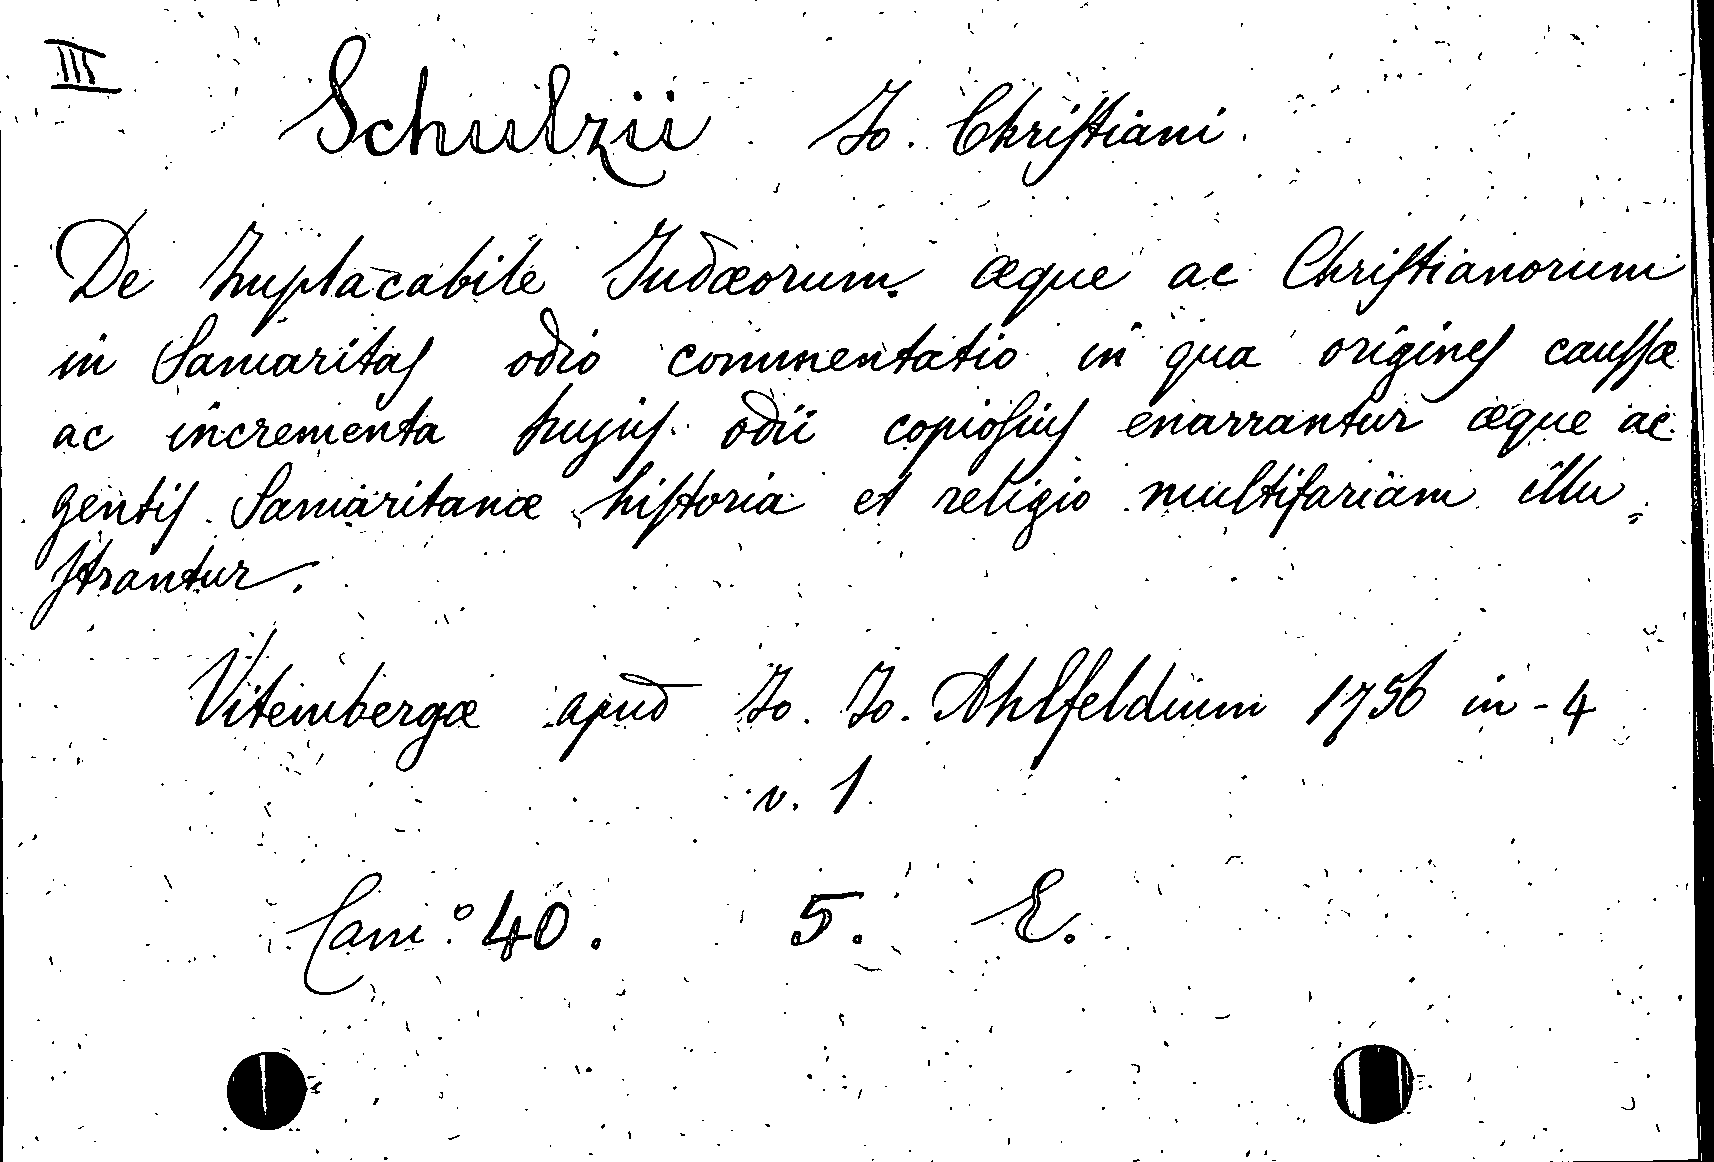 III
Schulzii Jo. Chriſtiani
De Implacabile Judæorum æque ac Chriſtianorum
in Samaritaſ odio commentatio in qua origineſ cauſſæ
ac incrementa hujuſ odii copioſiuſ enarrantur æque ac
gentiſ Samaritanæ hiſtoria et religio multifariam illu„
ſtrantur.
Vitembergæ apud Jo. Jo. Ahlfeldium 1756 in-4
v. 1
Cam:° 40. 5. E.